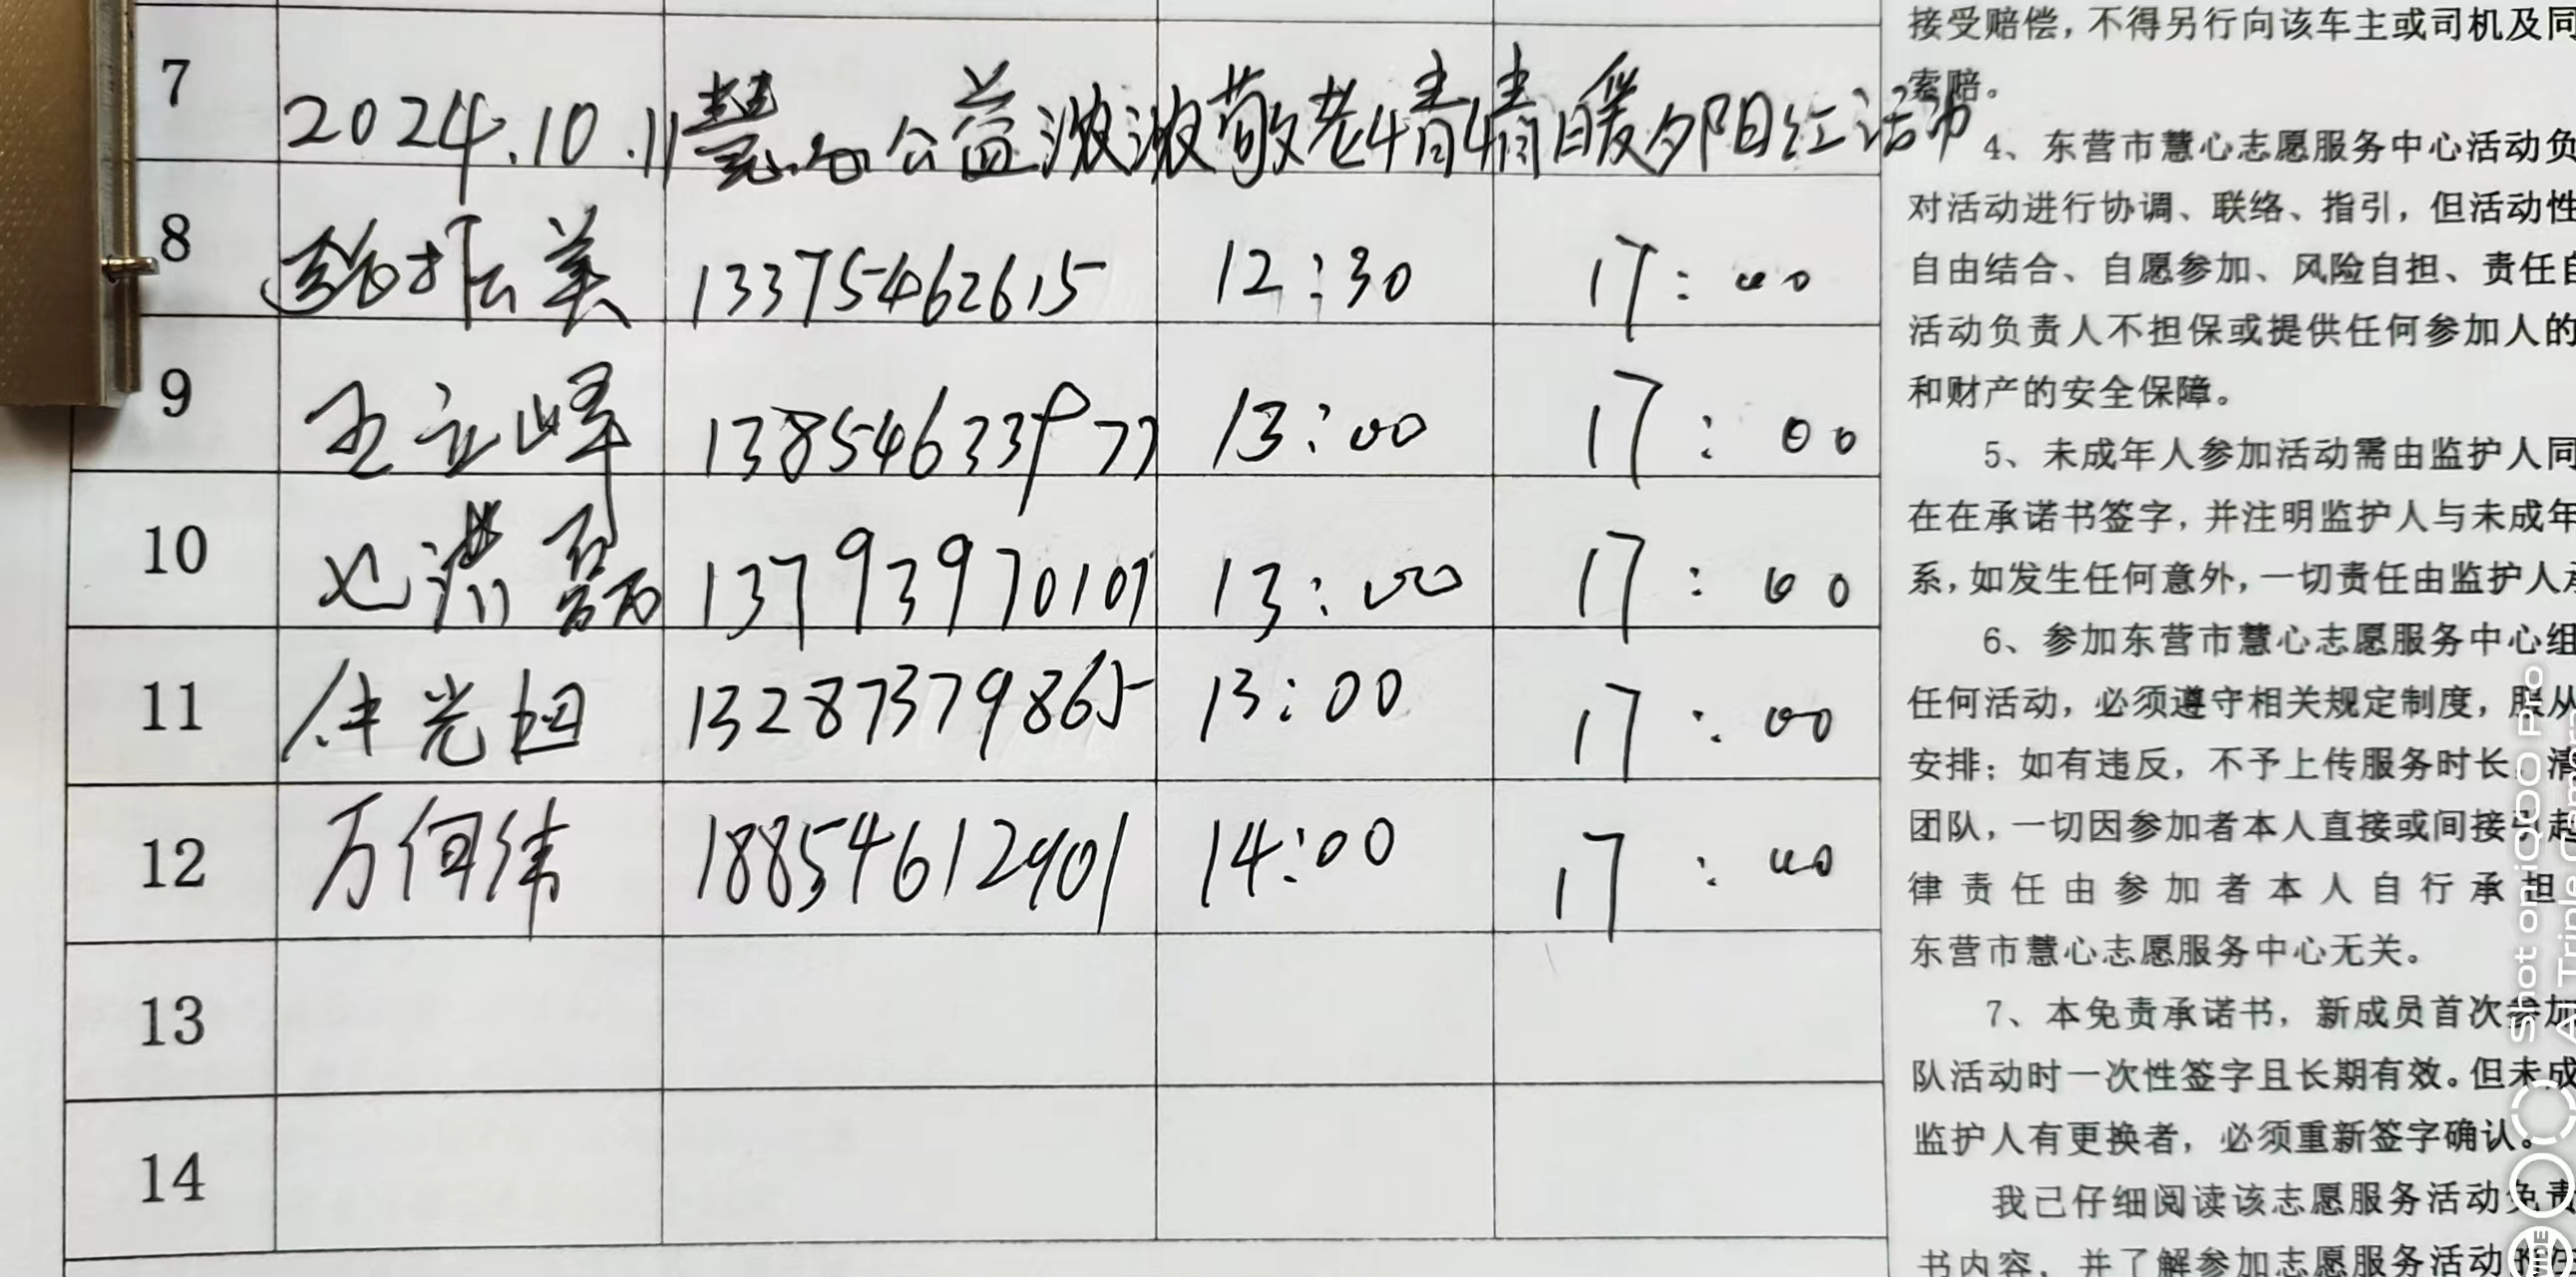 7 2024.10.11慧心公益浓浓敬老情情暖夕阳红活动
8 振英 13375462615 12:30 17:00
9 王立峰 13854633977 13:00 17:00
10 洪磊 13793970107 13:00 17:00
11 任光旭 13287379865 13:00 17:00
12 万何纬 18854612901 14:00 17:00
13
14
接受赔偿，不得另行向该车主或司机及同
索赔。
4、东营市慧心志愿服务中心活动负
对活动进行协调、联络、指引，但活动性
自由结合、自愿参加、风险自担、责任自
活动负责人不担保或提供任何参加人的
和财产的安全保障。
5、未成年人参加活动需由监护人同
在在承诺书签字，并注明监护人与未成年
系，如发生任何意外，一切责任由监护人承
6、参加东营市慧心志愿服务中心组
任何活动，必须遵守相关规定制度，服从
安排；如有违反，不予上传服务时长，清
团队，一切因参加者本人直接或间接引起
律责任由参加者本人自行承担
东营市慧心志愿服务中心无关。
7、本免责承诺书，新成员首次参加
队活动时一次性签字且长期有效。但未成
监护人有更换者，必须重新签字确认。
我已仔细阅读该志愿服务活动免责
书内容，并了解参加志愿服务活动
Shot on iQOO Pro
AI Triple Camera